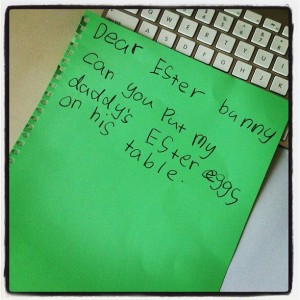 Dear Ester bunny
can you Put my
daddy's Ester eggs
on his table.